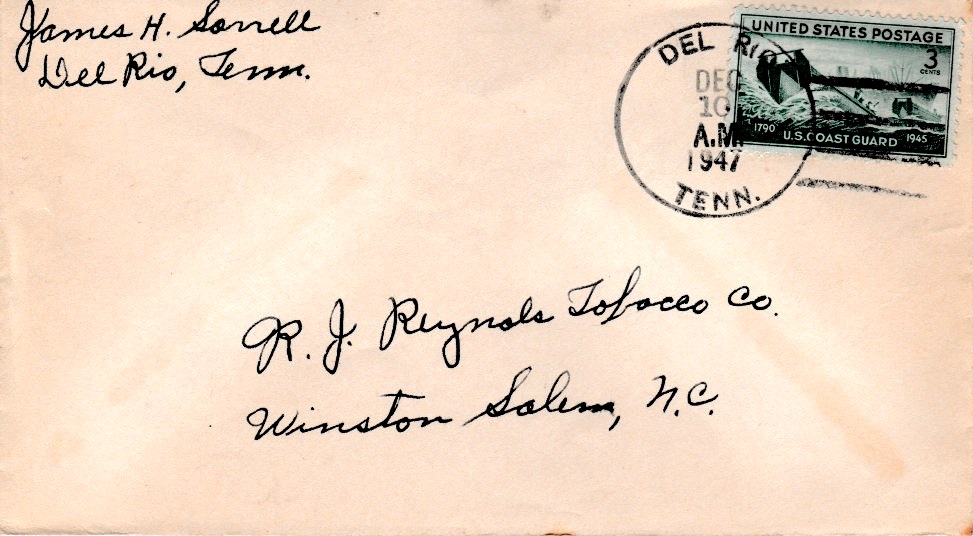 James H. Sorrell
Del Rio, Tenn.
UNITED STATES POSTAGE
3
CENTS
1790 U.S. COAST GUARD 1945
DEL RIO
DEC
10
A.M.
1947
TENN.
R. J. Reynols Tobacco Co.
Winston Salem, N.C.